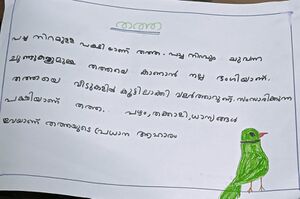 തത്ത
പച്ച നിറമുള്ള പക്ഷി ആണ് തത്ത. പച്ച നിറവും ചുവന്ന
ചുണ്ടുകളുമുള്ള തത്തയെ കാണാൻ നല്ല ഭംഗിയാണ്.
തത്തയെ വീടുകളിൽ കൂട്ടിലാക്കി വളർത്താറുണ്ട്. സംസാരിക്കുന്ന
പക്ഷിയാണ് തത്ത. പഴം, തക്കാളി, ധാന്യങ്ങൾ
ഒക്കെയാണ് തത്തയുടെ പ്രധാന ആഹാരം